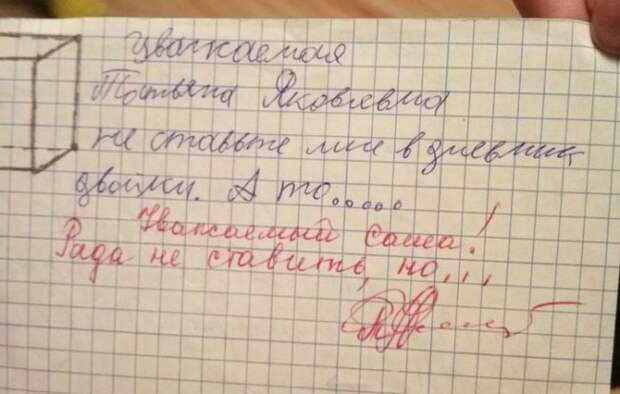 уважаемая
Татьяна Яковлевна
не ставьте мне в дневник
двойки. А то.....
Уважаемый Саша!
Рада не ставить, но...